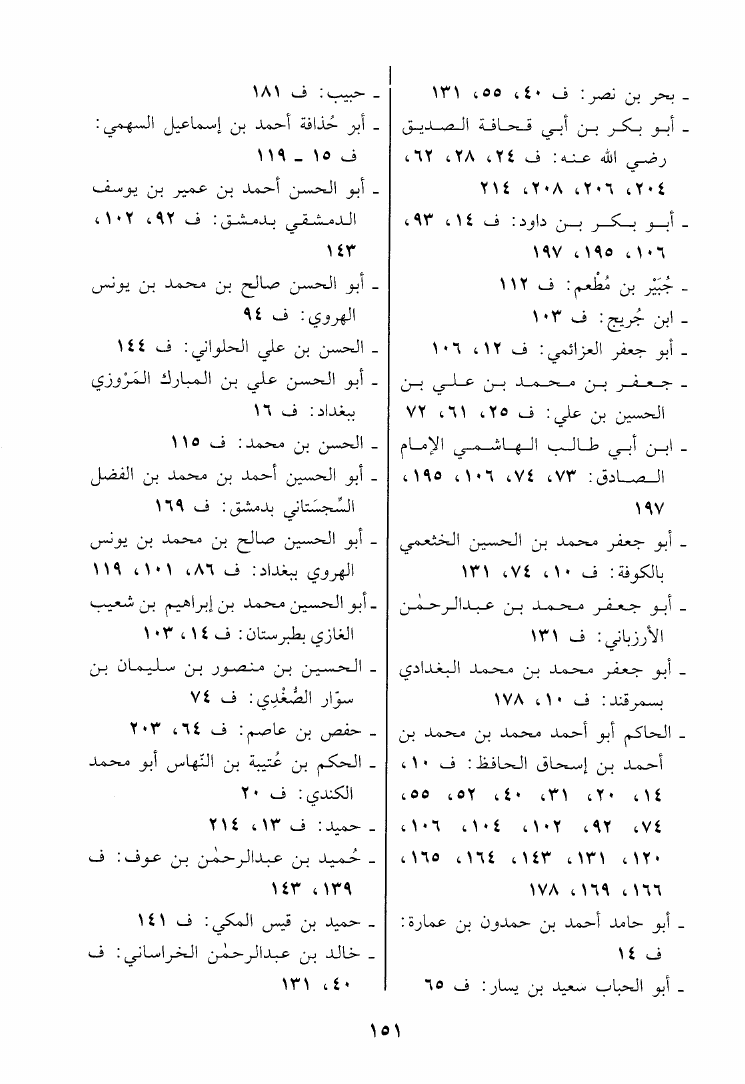 - بحر بن نصر: ف ٤٠، ٥٥، ١٣١
- أبو بكر بن أبي قحافة الصديق
رضي الله عنه: ف ٢٤، ٢٨، ٦٢،
٢٠٤، ٢٠٦، ٢٠٨، ٢١٤
- أبو بكر بن داود: ف ١٤، ٩٣،
١٠٦، ١٩٥، ١٩٧
- جُبَيْر بن مُطْعم: ف ١١٢
- ابن جُريج: ف ١٠٣
- أبو جعفر العزائمي: ف ١٢، ١٠٦
- جعفر بن محمد بن علي بن
الحسين بن علي: ف ٢٥، ٦١، ٧٢
- ابن أبي طالب الهاشمي الإمام
الصادق: ٧٣، ٧٤، ١٠٦، ١٩٥،
١٩٧
- أبو جعفر محمد بن الحسين الخثعمي
بالكوفة: ف ١٠، ٧٤، ١٣١
- أبو جعفر محمد بن عبدالرحمٰن
الأرزباني: ف ١٣١
- أبو جعفر محمد بن محمد البغدادي
بسمرقند: ف ١٠، ١٧٨
- الحاكم أبو أحمد محمد بن محمد بن
أحمد بن إسحاق الحافظ: ف ١٠،
١٤، ٢٠، ٣١، ٤٠، ٥٢، ٥٥،
٧٤، ٩٢، ١٠٢، ١٠٤، ١٠٦،
١٢٠، ١٣١، ١٤٣، ١٦٤، ١٦٥،
١٦٦، ١٦٩، ١٧٨
- أبو حامد أحمد بن حمدون بن عمارة:
ف ١٤
- أبو الحباب سعيد بن يسار: ف ٦٥
- حبيب: ف ١٨١
- أبر حُذافة أحمد بن إسماعيل السهمي:
ف ١٥ - ١١٩
- أبو الحسن أحمد بن عمير بن يوسف
الدمشقي بدمشق: ف ٩٢، ١٠٢،
١٤٣
- أبو الحسن صالح بن محمد بن يونس
الهروي: ف ٩٤
- الحسن بن علي الحلواني: ف ١٤٤
- أبو الحسن علي بن المبارك المَرْوزي
ببغداد: ف ١٦
- الحسن بن محمد: ف ١١٥
- أبو الحسين أحمد بن محمد بن الفضل
السِّجسَتاني بدمشق: ف ١٦٩
- أبو الحسين صالح بن محمد بن يونس
الهروي ببغداد: ف ٨٦، ١٠١، ١١٩
- أبو الحسين محمد بن إبراهيم بن شعيب
الغازي بطبرستان: ف ١٤، ١٠٣
- الحسين بن منصور بن سليمان بن
سوّار الصُّغْدِي: ف ٧٤
- حفص بن عاصم: ف ٦٤، ٢٠٣
- الحكم بن عُتيبة بن النّهاس أبو محمد
الكندي: ف ٢٠
- حميد: ف ١٣، ٢١٤
- حُميد بن عبدالرحمٰن بن عوف: ف
١٣٩، ١٤٣
- حميد بن قيس المكي: ف ١٤١
- خالد بن عبدالرحمٰن الخراساني: ف
٤٠، ١٣١
١٥١